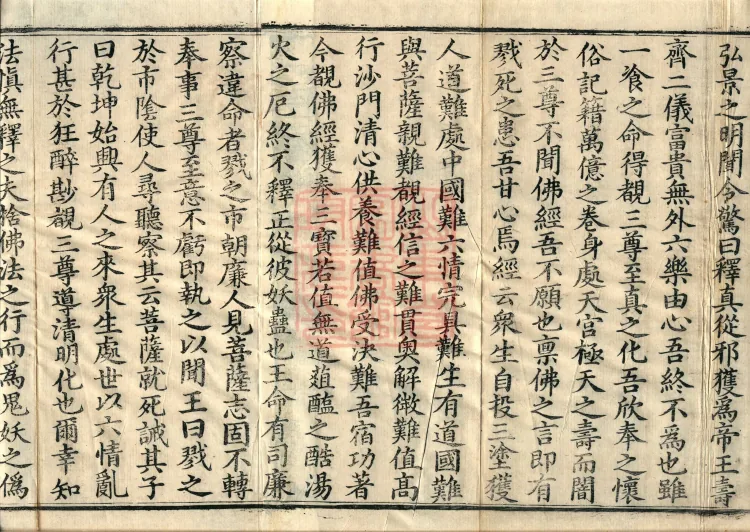 弘景之明聞令驚曰釋真從邪獲為帝王壽
齊二儀富貴無外六樂由心吾終不為也雖
一飡之命得覩三尊至真之化吾欣奉之懷
俗記籍萬億之卷身處天宮極天之壽而闇
於三尊不聞佛經吾不願也禀佛之言即有
戮死之患吾甘心焉經云衆生自投三塗獲
人道難處中國難六情完具難生有道國難
與菩薩親難覩經信之難貫奥解微難值髙
行沙門清心供養難值佛受決難吾宿功著
今覩佛經獲奉三寶若值無道葅醢之酷湯
火之厄終不釋正從彼妖蠱也王命有司廉
察違命者戮之市朝廉人見菩薩志固不轉
奉事三尊至意不虧即執之以聞王曰戮之
於市陰使人尋聽察其云菩薩就死誡其子
曰乾坤始興有人之來衆生處世以六情亂
行甚於狂醉尠覩三尊導清明化也爾幸知
法慎無釋之夫捨佛法之行而為鬼妖之偽